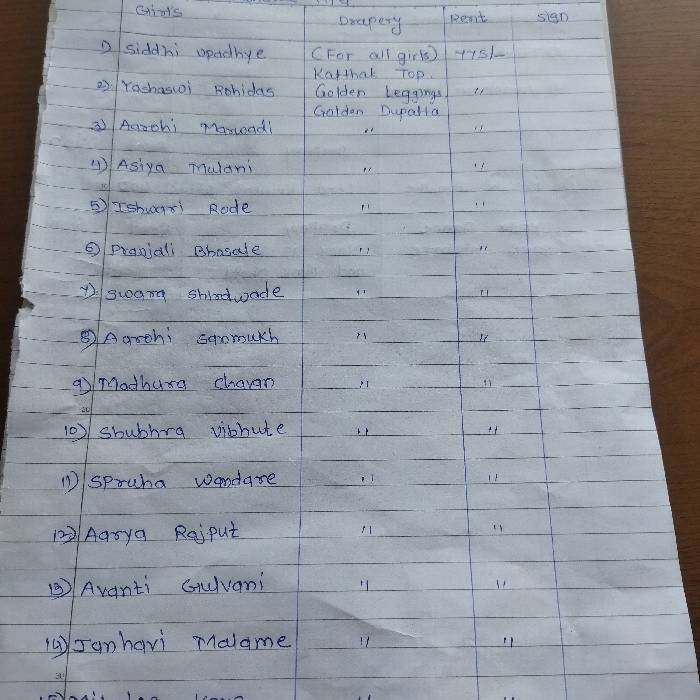 Girls Drapery Rent Sign
1) Siddhi Upadhye (For all girls) 775/-
Katthak Top.
2) Yashaswi Rohidas Golden Leggings "
Golden Dupatta
3) Aarohi Marwadi " "
4) Asiya Mulani " "
5) Ishwari Rode " "
6) Pranjali Bhosale " "
7) Swara Shirdwade " "
8) Aarohi Sanmukh " "
9) Madhura Chavan " "
10) Shubhra Vibhute " "
11) Spruha Wandare " "
12) Aarya Rajput " "
13) Avanti Gulvani " "
14) Janhavi Malame " "